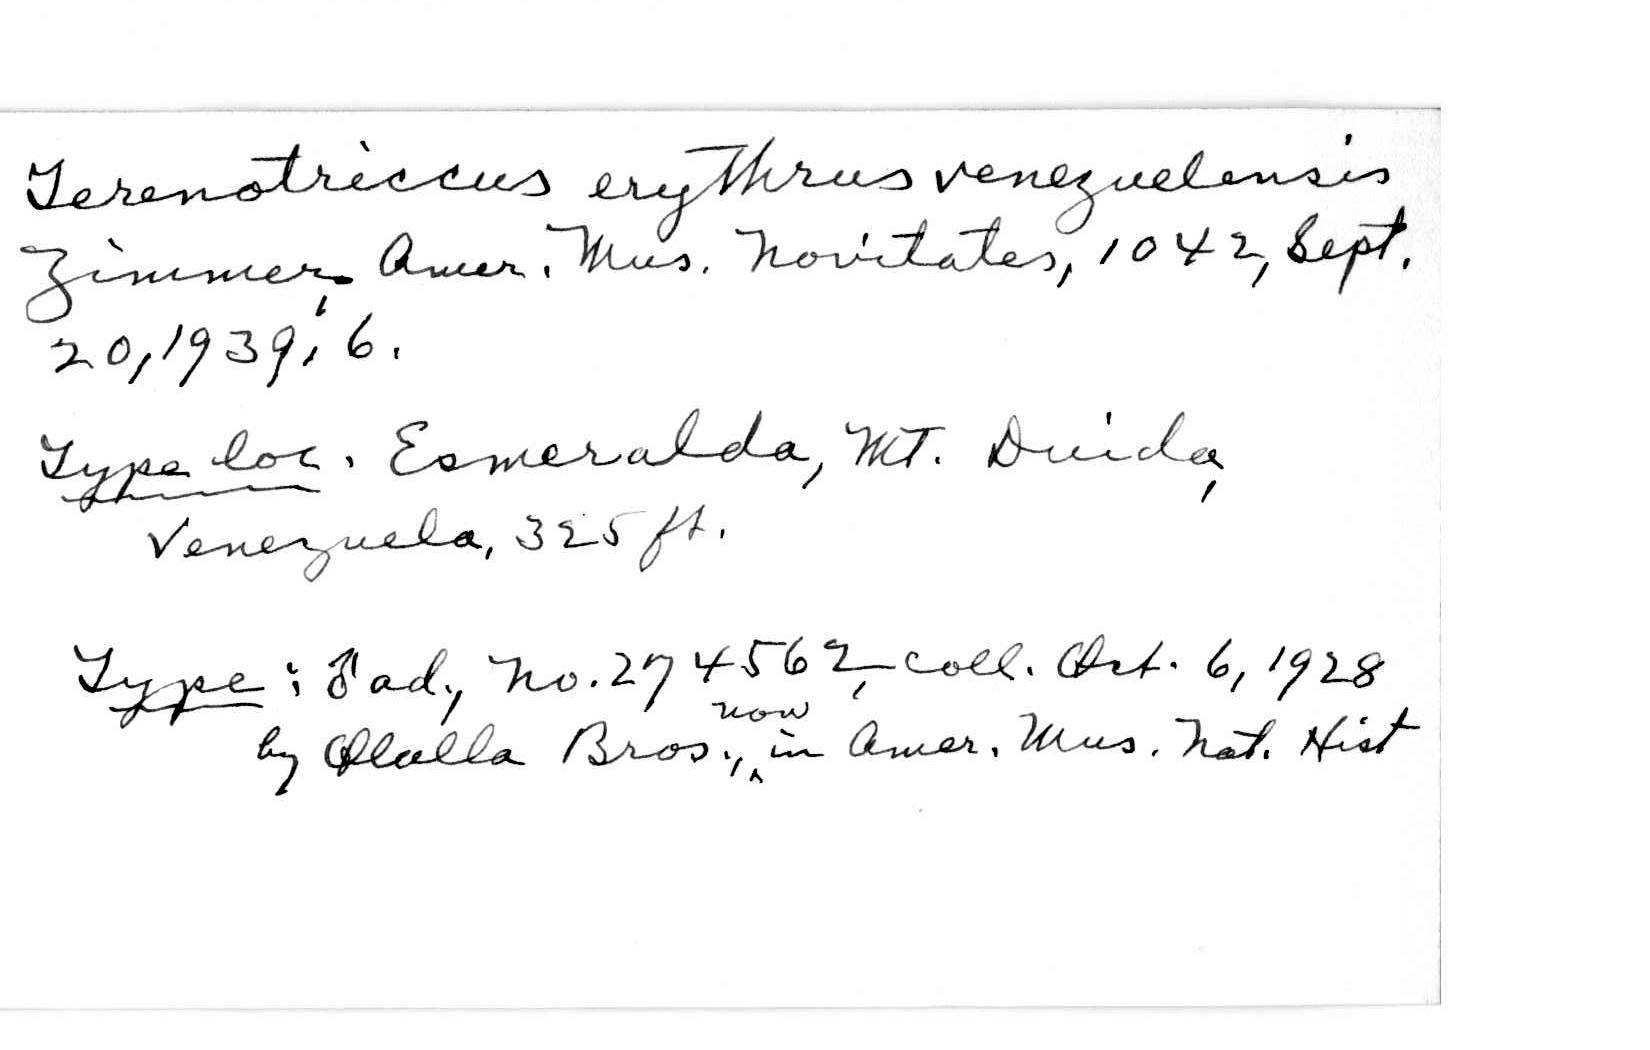 Terenotriccus erythrus venezuelensis
Zimmer, Amer. Mus. Novitates, 1042, Sept.
20, 1939; 6.
Type loc. Esmeralda, Mt. Duida,
Venezuela, 325 ft.
Type: ♂ ad., No. 274562, coll. Oct. 6, 1928
by Olalla Bros., now in Amer. Mus. Nat. Hist